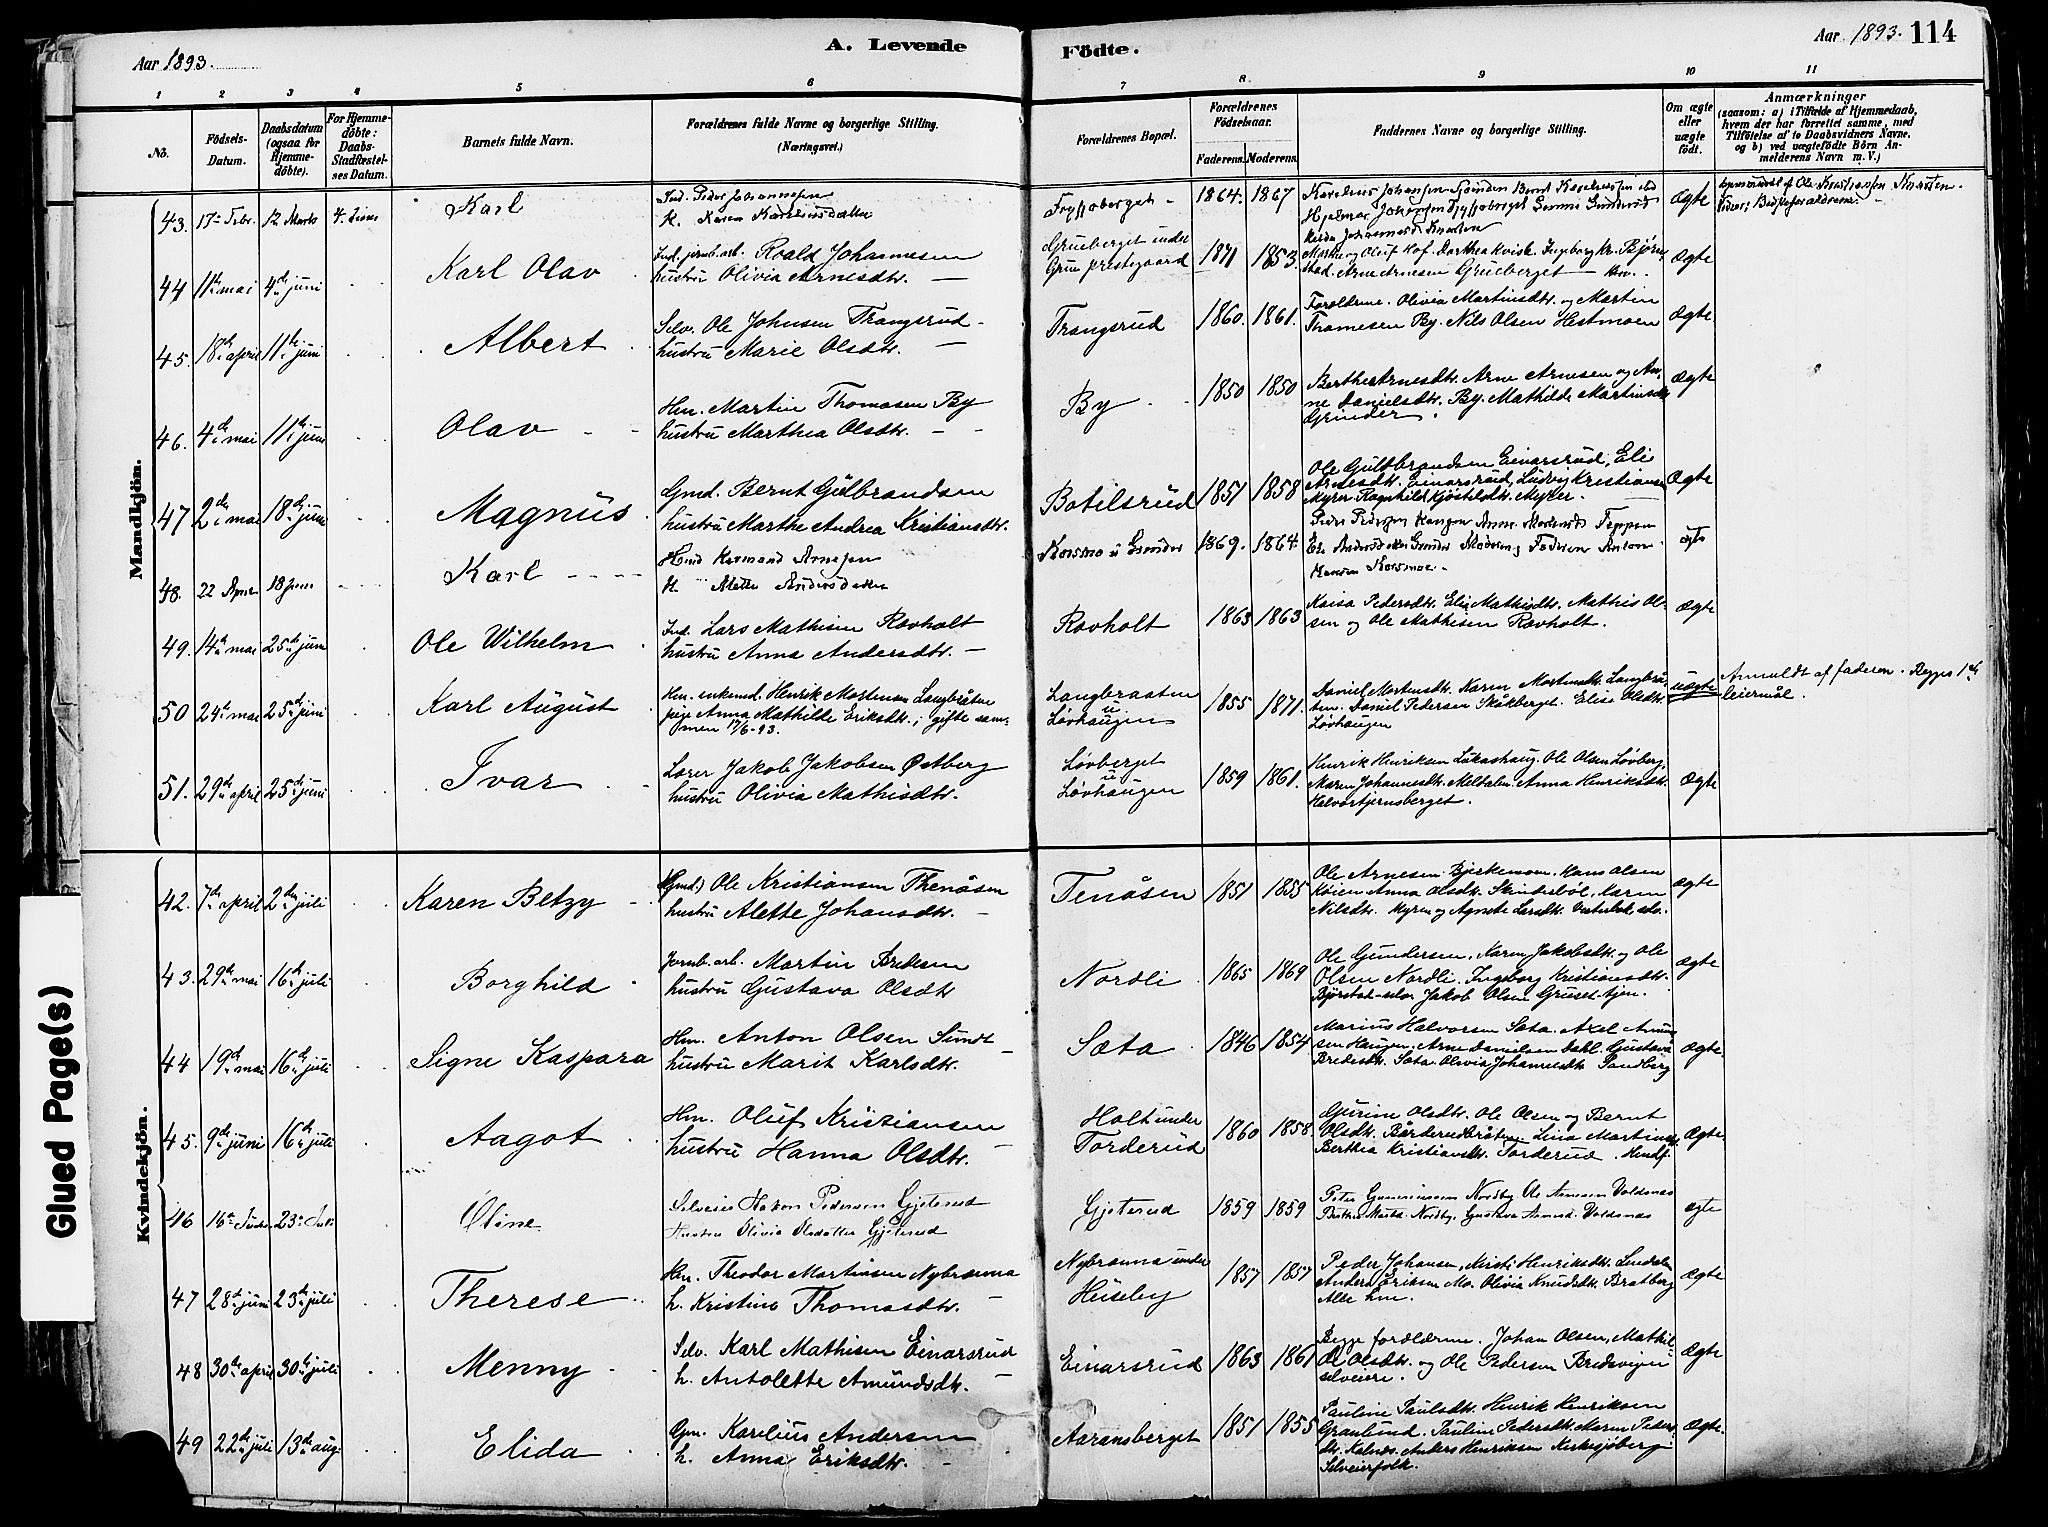 Aar 1893.
A. Levende
Födte.
Aar 1893. 114
1 2 3 4 5 6 7 8 9 10 11
No.
Födsels-Datum.
Daabsdatum (ogsaa for Hjemmedöbte).
For Hjemmedöbte: Daabs-Stadfæstelses Datum.
Barnets fulde Navn.
Forældrenes fulde Navne og borgerlige Stilling.
(Næringsvei.)
Forældrenes Bopæl.
Forældrenes Födselsaar.
Faderens. Moderens.
Faddernes Navne og borgerlige Stilling.
Om ægte eller uægte födt.
Anmærkninger
(saasom: a) i Tilfælde af Hjemmedaab, hvem der har forrettet samme, med Tilföielse af to Daabsvidners Navne, og b) ved uægtefödte Börn Anmelderens Navn m. V.)
Mandkjön.
43. 17de Febr. 12 Marts 4. Juni Karl
Ind. Peder Johannesen
H. Karen Kareliusdatter
1864. 1867
ægte
44 11te mai 4de juni Karl Olav
Ind. jernb.arb. Roald Johannesen
hustru Olivia Arnesdtr.
Grueberget under
Grue prestegaard
1871 1853.
Arne Arnesen Grueberget
Ægte
45. 18de april 11te juni Albert
Selv. Ole Johnsen Trangsrud
hustru Marie Olsdtr.
Trangsrud 1860. 1861.
Forældrene. Olivia Martinsdtr. og Martin
Thomesen By. Nils Olsen Hestmoen
Ægte
46. 4de mai 11te juni Olav
Hm. Martin Thomasen By
hustru Marthea Olsdtr.
By 1850 1850
Berthe Arnesdtr. Arne Arnesen og An-
ne Danielsdtr. By. Mathilde Martinsdtr.
Grinder.
Ægte
47 2den mai 18de juni Magnus
Gmd. Bernt Gulbrandsen
hustru Marthe Andrea Kristiansdtr.
Botilsrud 1851 1858
Ole Gulbrandsen Einarsrud, Eli
Arnesdtr. Einarsrud, Ludvig Kristiansen
Myrer. Ragnhild Kjöstelsdtr. Myrer.
Ægte
48. 22 April 18 Juni Karl
Arnesen
H. Alette Andersdatter
Korsmo u Grinder 1869. 1864
ægte
49. 14de mai 25de juni Ole Wilhelm
Ind. Lars Mathisen Rovholt
hustru Anna Andersdtr.
Rovholt 1863 1863
Kaisa Pedersdtr. Elie Mathisdtr. Mathis Ol-
sen og Ole Mathisen Rovholt.
Ægte
50 24de mai 25de juni Karl August
Hm. enkemd. Henrik Mortensen Langbråten
pige Anna Mathilde Eriksdtr.; gifte sam-
men 17/6-93.
Langbraaten
u
Løvhaugen
1855 1871.
Daniel Mortensdtr. Karen Mortensdtr. Langbrå-
ten. Daniel Pedersen Skåkberget. Elise Olsdtr.
Løvhaugen
uægte
Anmeldt af faderen. Begges 1ste
leiermål.
51. 29de april 25de juni Ivar
Lærer Jakob Jakobsen Østberg
hustru Olivia Mathisdtr.
Løvberget
u
Løvhaugen
1859 1861.
Henrik Henriksen Lukashaug. Ole Olsen Løvberg.
Maren Johannesdtr. Meldalen. Anna Henriksdtr.
Halvortjernsberget.
Ægte
Kvindekjön.
42. 7de april 2den juli Karen Betzy
(Gmd.) Ole Kristiansen Thenåsen
hustru Alette Johansdtr.
Tenåsen 1851 1855
Ole Arnesen Bjerkemoen. Hans Olsen
Køien Anna Olsdtr. Skinderböl, Karen
Nilsdtr. Myren og Agnete Larsdtr.
ægte
43. 29de mai 16de juli Borghild
Jernb.arb. Martin Bredesen
hustru Gustava Olsdtr.
Nordli 1865 1869
Ole Gundersen. Karen Jakobsdtr. og Ole
Olsen Nordli. Ingeborg Kristiansdtr.
Jakob Olsen Gruset-tjen.
ægte
44 19de mai 16de juli Signe Kaspara
Hm. Anton Olsen Sundt
hustru Marit Karlsdtr.
Sæta 1846 1854
Marius Halvorsen Sæta. Axel Amund-
sen Haugen. Arne Danielsen Dahl. Gustava
Bredesdtr. Sæta. Olivia Johannesdtr. Sandberg
Ægte.
45. 9de juni 16de juli Aagot
Hm. Oluf Kristiansen
hustru Hanna Olsdtr.
Holt under
Torderud
1860 1858.
Gurine Olsdtr. Ole Olsen og Bernt
Olsdtr. Bårderudbråten. Lina Martins
Berthea Kristiansdtr. Torderud.
Ægte.
46 16de Juni 23de Juli Oline
Selveier Hakon Pedersen Gjeterud
Hustru Olivia Olsdatter Gjeterud
Gjeterud 1859 1859
Peter Guneriussen Nordby Ole Arnesen Valdsnæs
Nordby. Gustava Arnesd. Valdsnæs
ægte
47 28de juni 23de juli Therese
Hm. Theodor Martinsen Nybrænna
h. Kristine Thomasdtr.
Nybrænna under
Huseby
1857 1857
Peder Johansen, Kristi Henriksdtr. Lindalen
Anders Eriksen Mo. Olivia Knudsdtr. Bratberg
Alle hm.
Ægte
48 30te april 30te juli Menny
Selv. Karl Mathisen Einarsrud
h. Antolette Amundsdtr.
Einarsrud 1863 1861
Begge forældrene. Johan Olsen, Mathil-
de Olsdtr. og Ole Pedersen Bredsvigen
selveiere.
Ægte
49 22de juli 13de aug. Elida
Gm. Karelius Andersen
h. Anna Eriksdtr.
Aaransberget 1851 1855
Pauline Paulsdtr. Henrik Henriksen
Granlund. Pauline Pedersdtr. Maren Peders-
dtr. Kalnæs. Anders Henriksen Kirkesjøberg
Selveierfolk.
Ægte.
Glued Page(s)